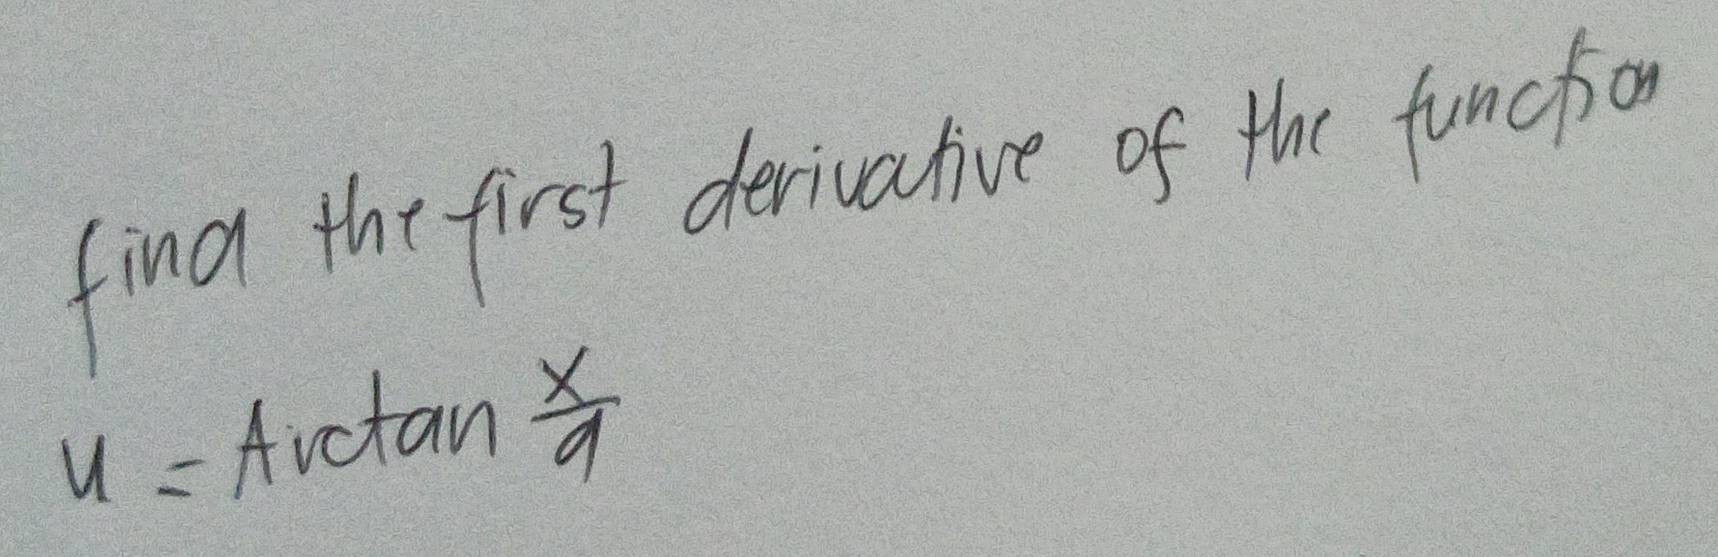 find the first derivative of the function
u = Arctan x/a